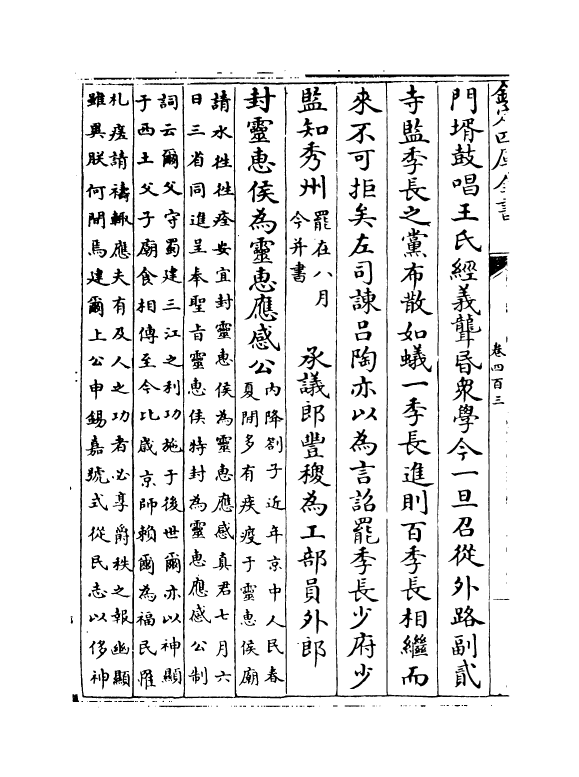 欽定四庫全書
卷四百三
門壻鼓唱王氏經義聾昬衆學今一旦召從外路副貳
寺監季長之黨布散如蟻一季長進則百季長相繼而
來不可拒矣左司諫吕陶亦以為言詔罷季長少府少
監知秀州罷在八月今并書 承議郎豐稷為工部員外郎
封靈惠侯為靈惠應感公内降劄子近年京中人民春
夏間多有疾疫于靈惠侯廟
請水徃徃痊安宜封靈惠侯為靈惠應感真君七月六
日三省同進呈奉聖旨靈惠侯特封為靈惠應感公制
詞云爾父守蜀建三江之利功施于後世爾亦以神顯
于西土父子廟食相傳至今比歲京師賴爾為福民罹
札瘥請禱輙應夫有及人之功者必享爵秩之報幽顯
雖異朕何間焉建爾上公申錫嘉號式從民志以侈神